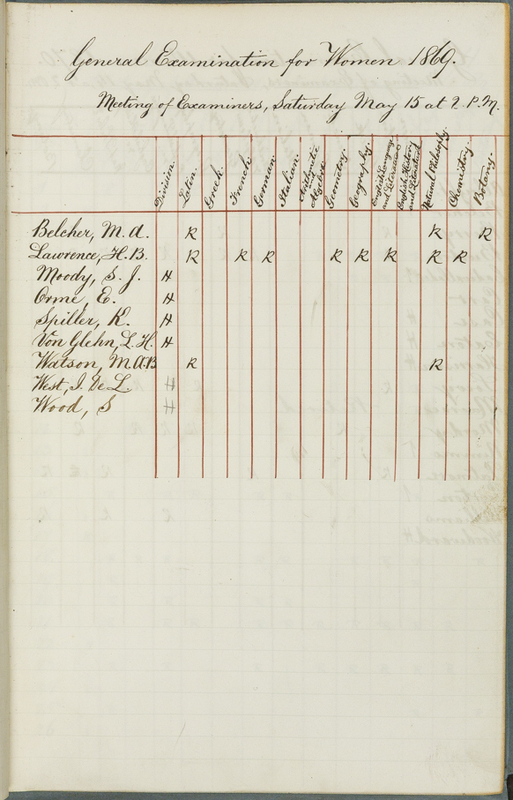 General Examination for Women 1869.
Meeting of Examiners, Saturday May 15 at 2 P.M.
Division. Latin. Greek. French. German. Italian. Arithmetic Algebra. Geometry. Geography. English Language and Literature English History and Literature Natural Philosophy. Chemistry. Botany.
Belcher, M. A. R R R
Lawrence, H. B. R R R R R R R R
Moody, S. J. H
Orme, E. H
Spiller, K. H
Von Glehn, L. H. H
Watson, M.A.B R R
West, J. De L. H
Wood, S H